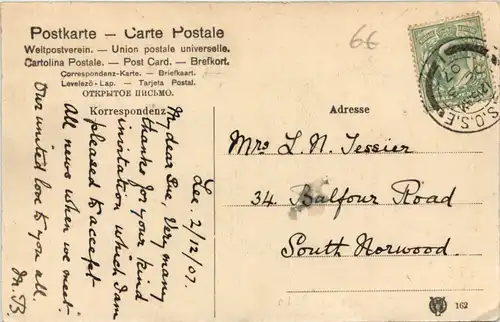 Postkarte — Carte Postale
Weltpostverein. — Union postale universelle.
Cartolina Postale. — Post Card. — Brefkort.
Correspondenz-Karte. — Briefkaart.
Levelezö-Lap. — Tarjeta Postal.
ОТКРЫТОЕ ПИСЬМО.
Korrespondenz
Adresse
6€
S.O.S.E.
07
Lee. 2/12/07.
My dear Sue, Very many
thanks for your kind
invitation which I am
pleased to accept
All news when we meet
Our united love to you all.
M.B.
Mrs L. N. Tessier
34 Balfour Road
South Norwood.
162